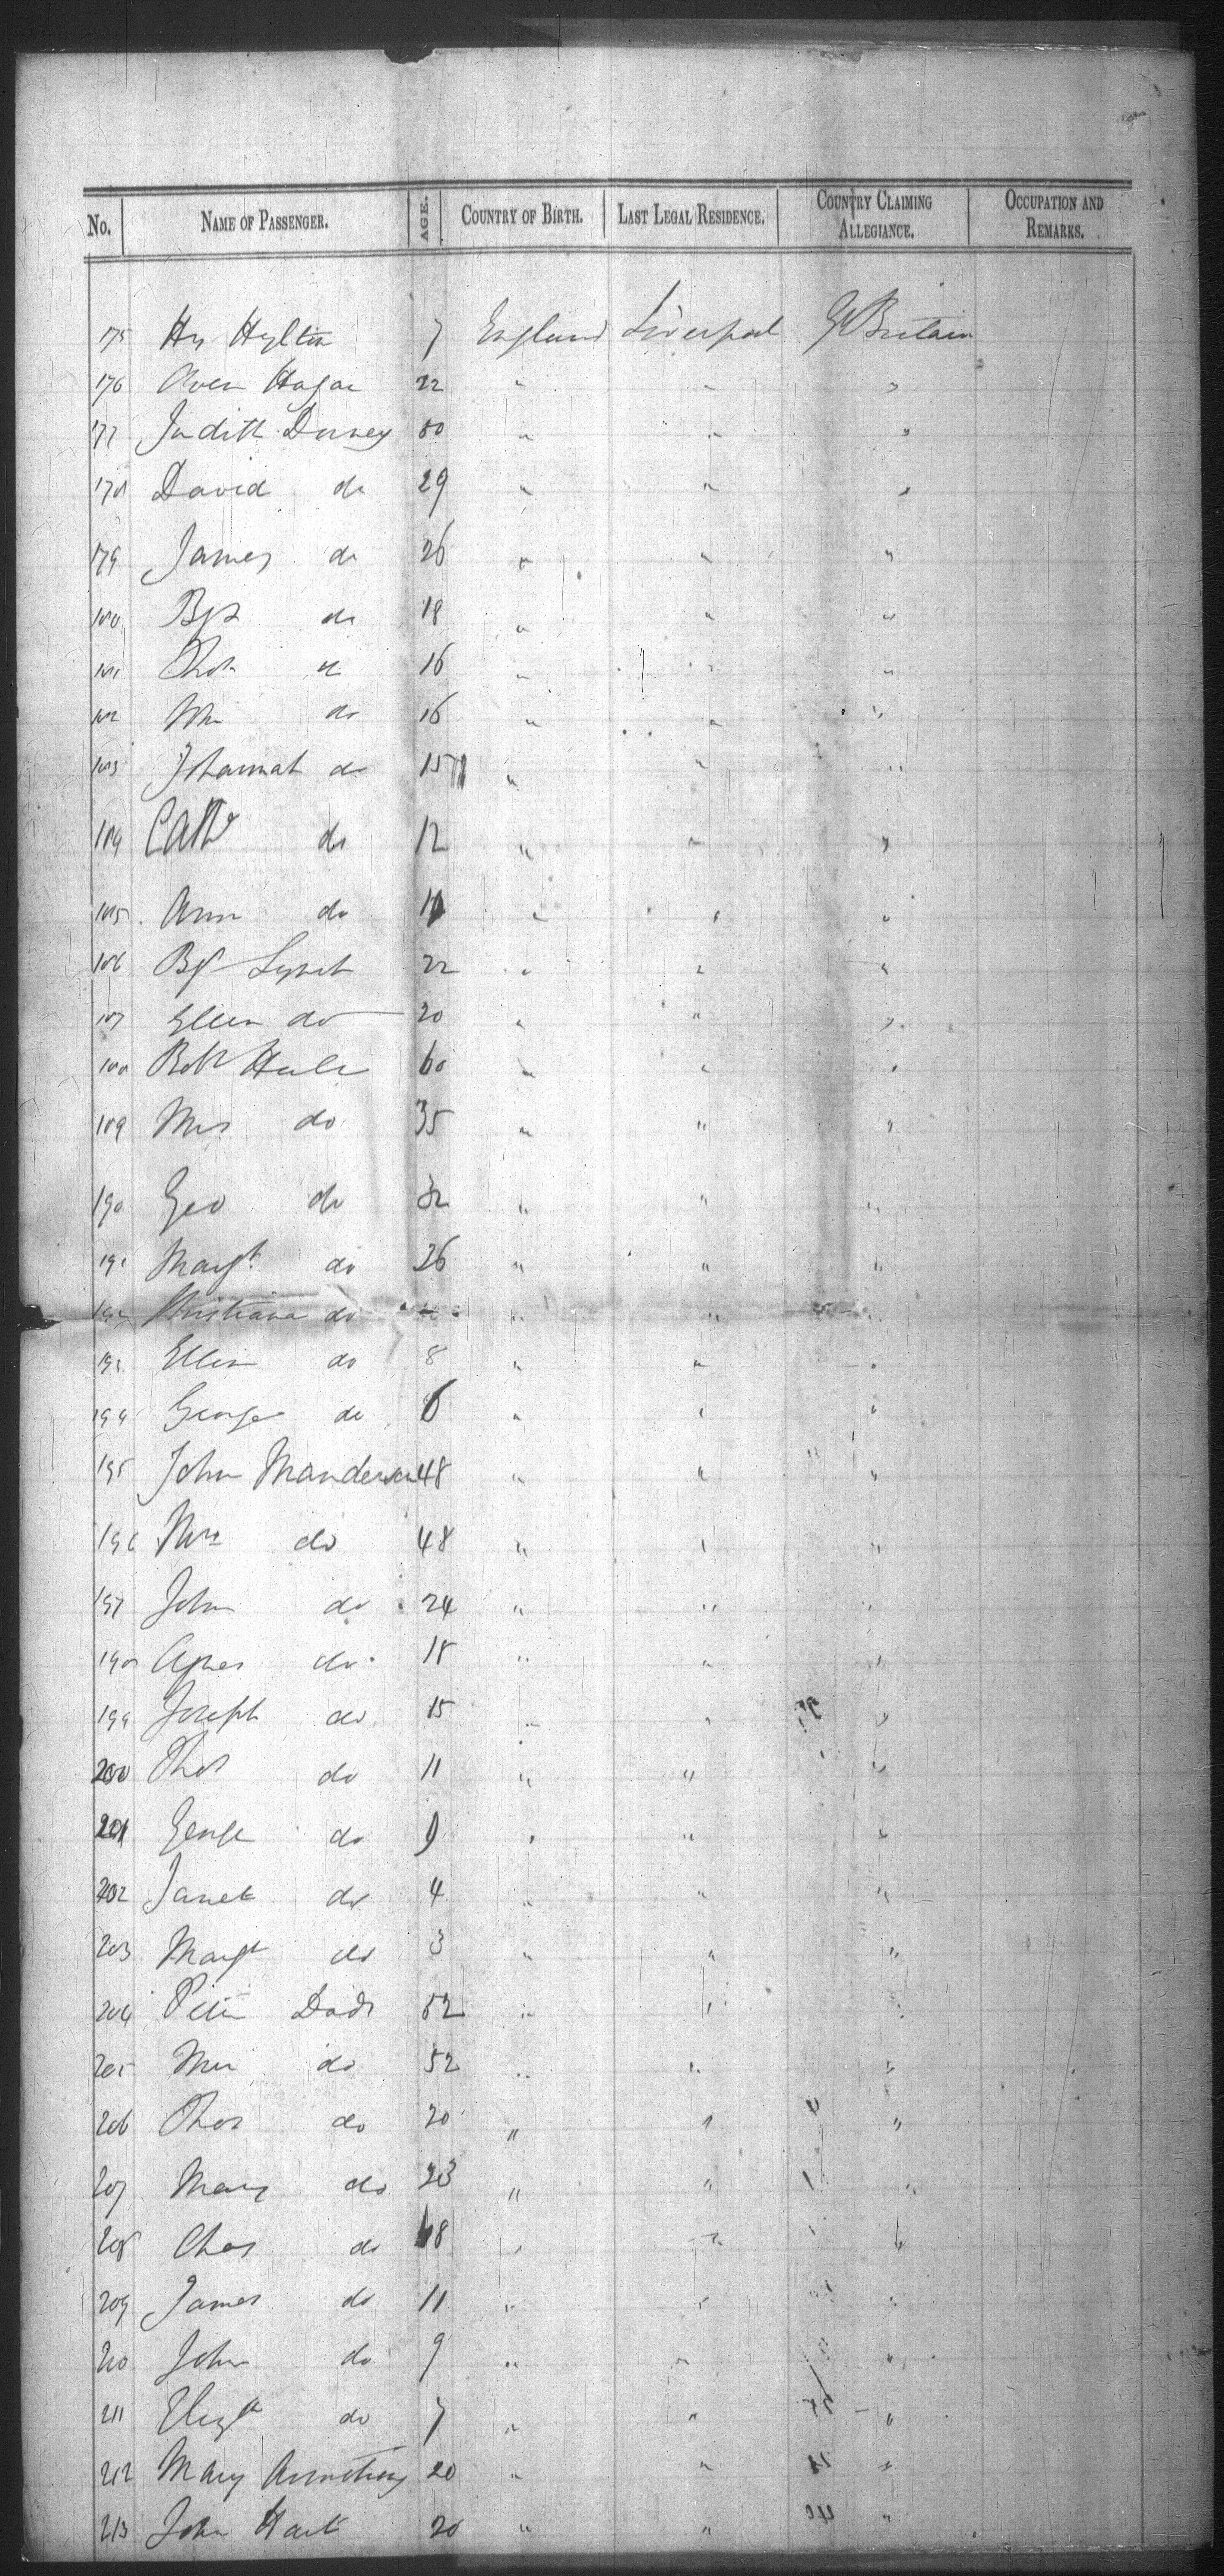 No. NAME OF PASSENGER. AGE. COUNTRY OF BIRTH. LAST LEGAL RESIDENCE. COUNTRY CLAIMING ALLEGIANCE. OCCUPATION AND REMARKS.
175 Hy Hylton 7 England Liverpool Gt Britain
176 Owen Hagan 22 " " "
177 Judith Dorsey 50 " " "
178 David do 29 " " "
179 James do 26 " " "
180 Bgt do 18 " " "
181 Thos do 16 " " "
182 Wm do 16 " " "
183 Johannah do 15 " " "
184 Cathe do 12 " " "
185 Ann do " " "
186 Bgt Lynch 22 " " "
187 Ellen do 20 " " "
188 Robt 60 " " "
189 Mrs do 35 " " "
190 Geo do 32 " " "
191 Margt do 26 " " "
192 Christiana do " " "
193 Ellen do 8 " " "
194 George do 6 " " "
195 John Manderson 48 " " "
196 Mrs do 48 " " "
197 John do 24 " " "
198 Agnes do 18 " " "
199 Joseph do 15 " " "
200 Thos do 11 " " "
201 George do 9 " " "
202 Janet do 4 " " "
203 Margt do 3 " " "
204 Peter Dods 52 " " "
205 Mrs do 52 " " "
206 Thos do 20 " " "
207 Mary do 23 " " "
208 Chas do 18 " " "
209 James do 11 " " "
210 John do 9 " " "
211 Elizth do 7 " " "
212 Mary Armstrong 20 " " "
213 John Hart 20 " " "